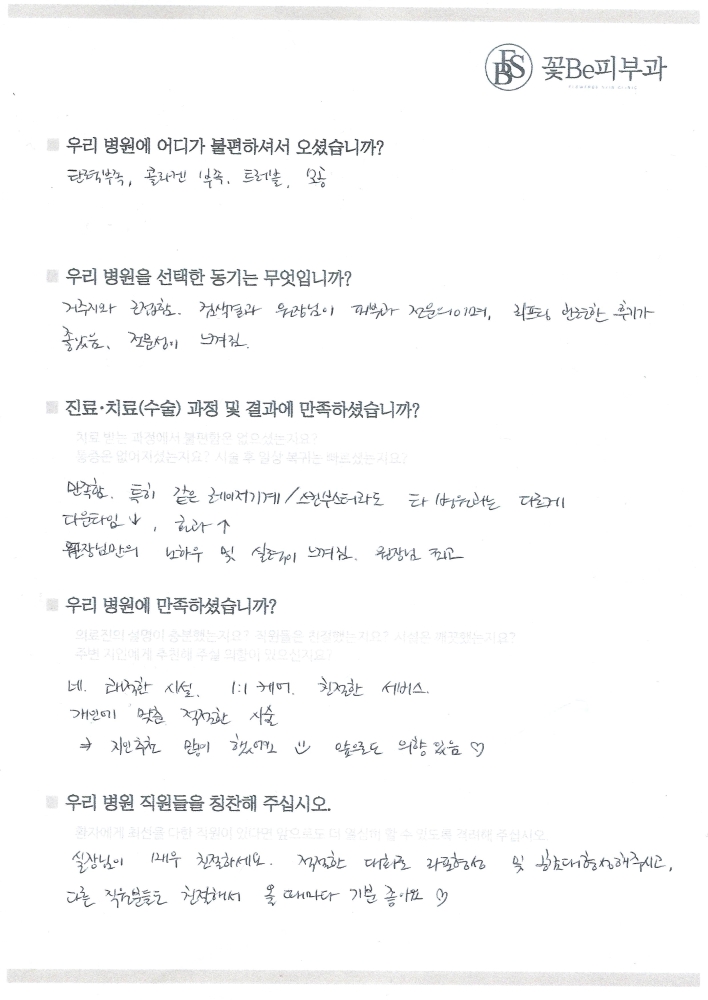 FBS 꽃Be피부과
우리 병원에 어디가 불편하셔서 오셨습니까?
탄력부족, 콜라겐 부족, 트러블, 모공
우리 병원을 선택한 동기는 무엇입니까?
거주지와 근접함. 검색결과 원장님이 피부과 전문의이며, 리프팅 관련한 후기가
좋았음, 전문성이 느껴짐.
진료·치료(수술) 과정 및 결과에 만족하셨습니까?
치료 받는 과정에서 불편함은 없으셨는지요?
통증은 없어지셨는지요? 시술 후 일상 복귀는 빠르셨는지요?
만족함. 특히 같은 레이저기계/스킨부스터라도 타 병원과는 다르게
다운타임 ↓, 효과 ↑
원장님만의 노하우 및 실력이 느껴짐. 원장님 최고
우리 병원에 만족하셨습니까?
의료진의 설명이 충분했는지요? 직원들은 친절했는지요? 시설은 깨끗했는지요?
주변 지인에게 추천해 주실 의향이 있으신지요?
네. 쾌적한 시설, 1:1 케어. 친절한 서비스.
개인에 맞춘 적절한 시술
→ 지인추천 많이 했어요 앞으로도 의향 있음 ♡
우리 병원 직원들을 칭찬해 주십시오.
환자에게 최선을 다한 직원이 있다면 앞으로도 더 열심히 할 수 있도록 격려해 주십시오.
실장님이 매우 친절하세요. 적절한 대화로 라포형성 및 공감대형성해주시고,
다른 직원분들도 친절해서 올 때마다 기분 좋아요 ♡